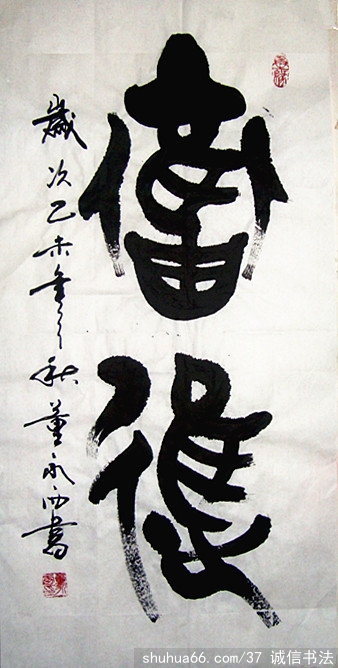 奮進
歲次乙未年之秋董永西書
shuhua66.com/37 诚信书法